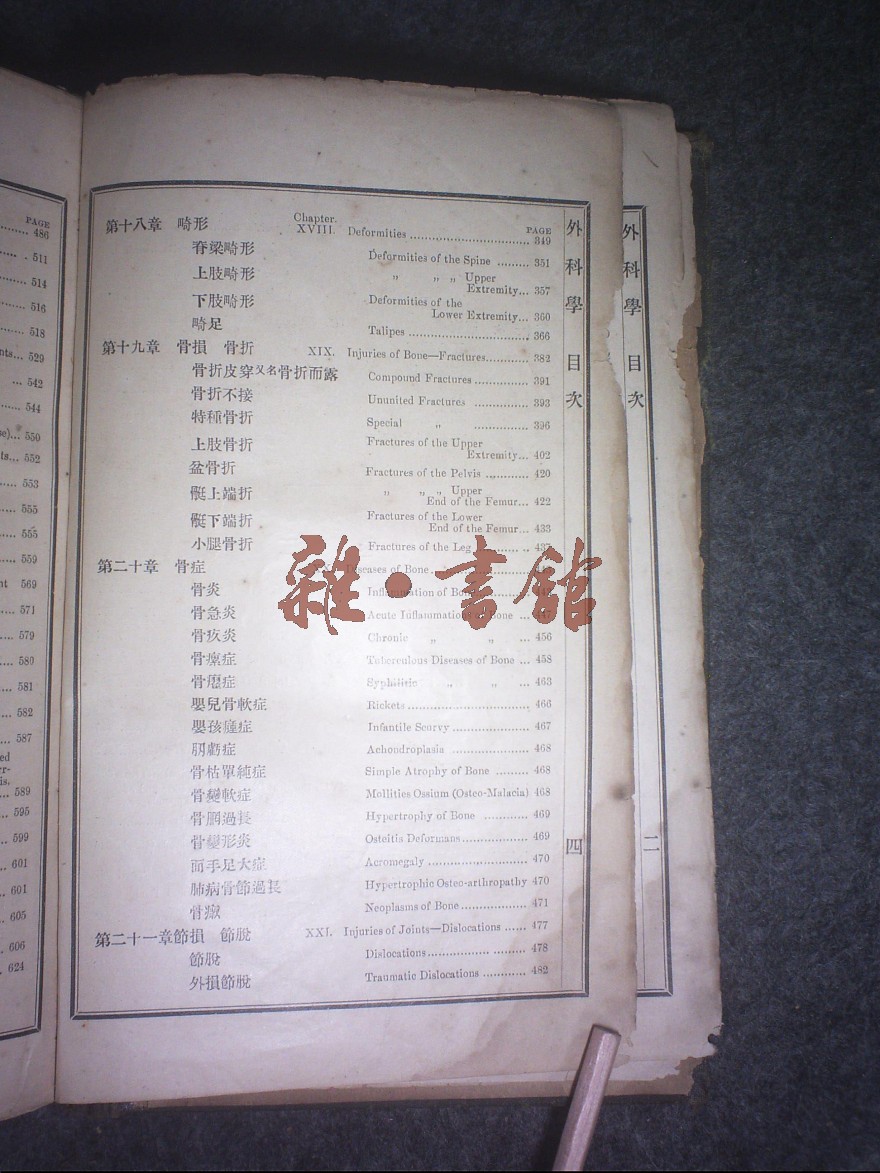 PAGE
486
511
514
516
518
529
542
544
550
552
553
555
555
559
569
571
579
580
581
582
587
589
595
599
601
601
605
606
624
Chapter. PAGE
第十八章 畸形 XVIII. Deformities 349
脊梁畸形 Deformities of the Spine 351
上肢畸形 „ „ „ Upper
Extremity... 357
下肢畸形 Deformities of the
Lower Extremity... 360
畸足 Talipes 366
第十九章 骨損 骨折 XIX. Injuries of Bone—Fractures 382
骨折皮穿又名骨折而露 Compound Fractures 391
骨折不接 Ununited Fractures 393
特種骨折 Special „ 396
上肢骨折 Fractures of the Upper
Extremity... 402
盆骨折 Fractures of the Pelvis 420
上端折 „ „ „ Upper
End of the Femur... 422
下端折 Fractures of the Lower
End of the Femur... 433
小腿骨折 Fractures of the Leg
第二十章 骨症 Diseases of Bone
骨炎 Inflammation of
骨急炎 Acute Inflammation of Bone ... 447
骨疚炎 Chronic „ „ ... 456
骨瘰症 Tuberculous Diseases of Bone ... 458
骨症 Syphilitic „ „ ... 463
嬰兒骨軟症 Rickets 466
嬰孩症 Infantile Scurvy 467
症 Achondroplasia 468
骨枯單純症 Simple Atrophy of Bone 468
骨變軟症 Mollities Ossium (Osteo-Malacia) 468
骨過長 Hypertrophy of Bone 469
骨變形炎 Osteitis Deformans 469
面手足大症 Acromegaly 470
肺病骨節過長 Hypertrophic Osteo-arthropathy 470
骨 Neoplasms of Bone 471
第二十一章 節損 節脫 XXI. Injuries of Joints—Dislocations 477
節脫 Dislocations 478
外損節脫 Traumatic Dislocations 482
外科學 目次 四
外科學 目次 二
雜·書館